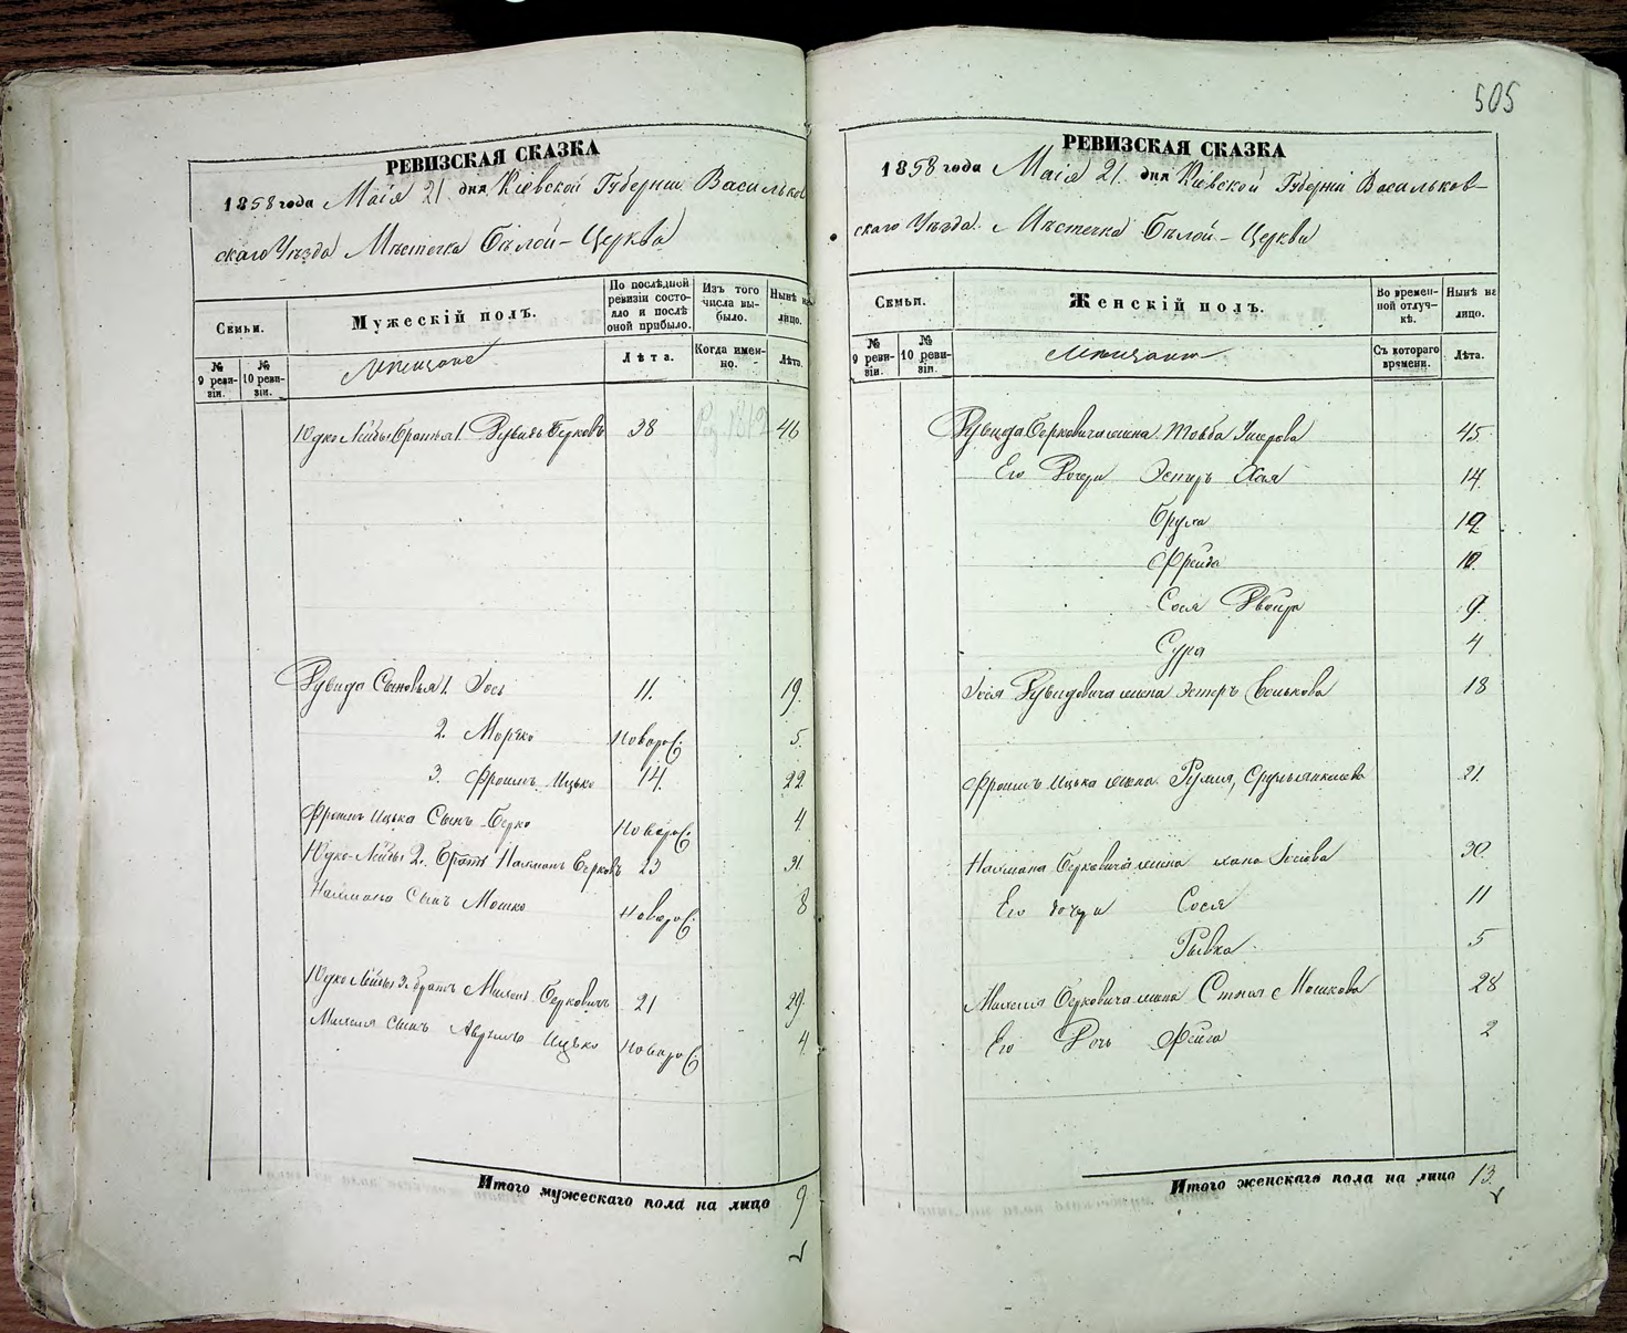 505
РЕВИЗСКАЯ СКАЗКА
1858 года Маія 21. дня Кіевской Губерніи Васильков
скаго Уѣзда Мѣстечка Бѣлой-Церкви
Семьи.
Мужескій полъ.
По послѣдней ревизіи состояло и послѣ оной прибыло.
Изъ того числа выбыло.
Нынѣ на лицо.
№ 9 ревизіи.
№ 10 ревизіи.
Мѣщане
Лѣта.
Когда именно.
Лѣта.
Юдко Лейбы братья 1. Рувидъ Берковъ 38 46
Рувида Сыновья 1. Іось 11. 19.
2. Моръко Новорož. 5.
3. Фроимъ Ицько 14. 22
Фроимъ Ицька Сынъ Берко 4.
Юдко-Лейбы 2. Братъ Нахманъ Берковъ 23 31.
Нахмана Сынъ Мошко 8
Юдко Лейбы 3. братъ Михель Берковичъ 21 29.
Михеля сынъ Аврумъ Ицько 4.
Итого мужескаго пола на лицо 9
РЕВИЗСКАЯ СКАЗКА
1858 года Маія 21. дня Кіевской Губерніи Васильков-
скаго Уѣзда. Мѣстечка Бѣлой-Церкви
Семьи.
Женскій полъ.
Во временной отлучкѣ.
Нынѣ на лицо.
№ 9 ревизіи.
№ 10 ревизіи.
Мѣщане
Съ котораго времени.
Лѣта.
Рувида Берковича жена Товба 45.
Его Дочери Эстеръ Хая 14.
Бруха 12.
Фрейда 10.
Сося Двойра 9.
Сура 4
Іося Рувидовича жена Эстеръ 18
Фроимъ Ицька жена 21.
Нахмана Берковича жена Хана 30.
Его дочери Сося 11
Рывка 5
Михеля Берковича жена Мошкова 28
Его Дочь Фейга 2
Итого женскаго пола на лицо 13.